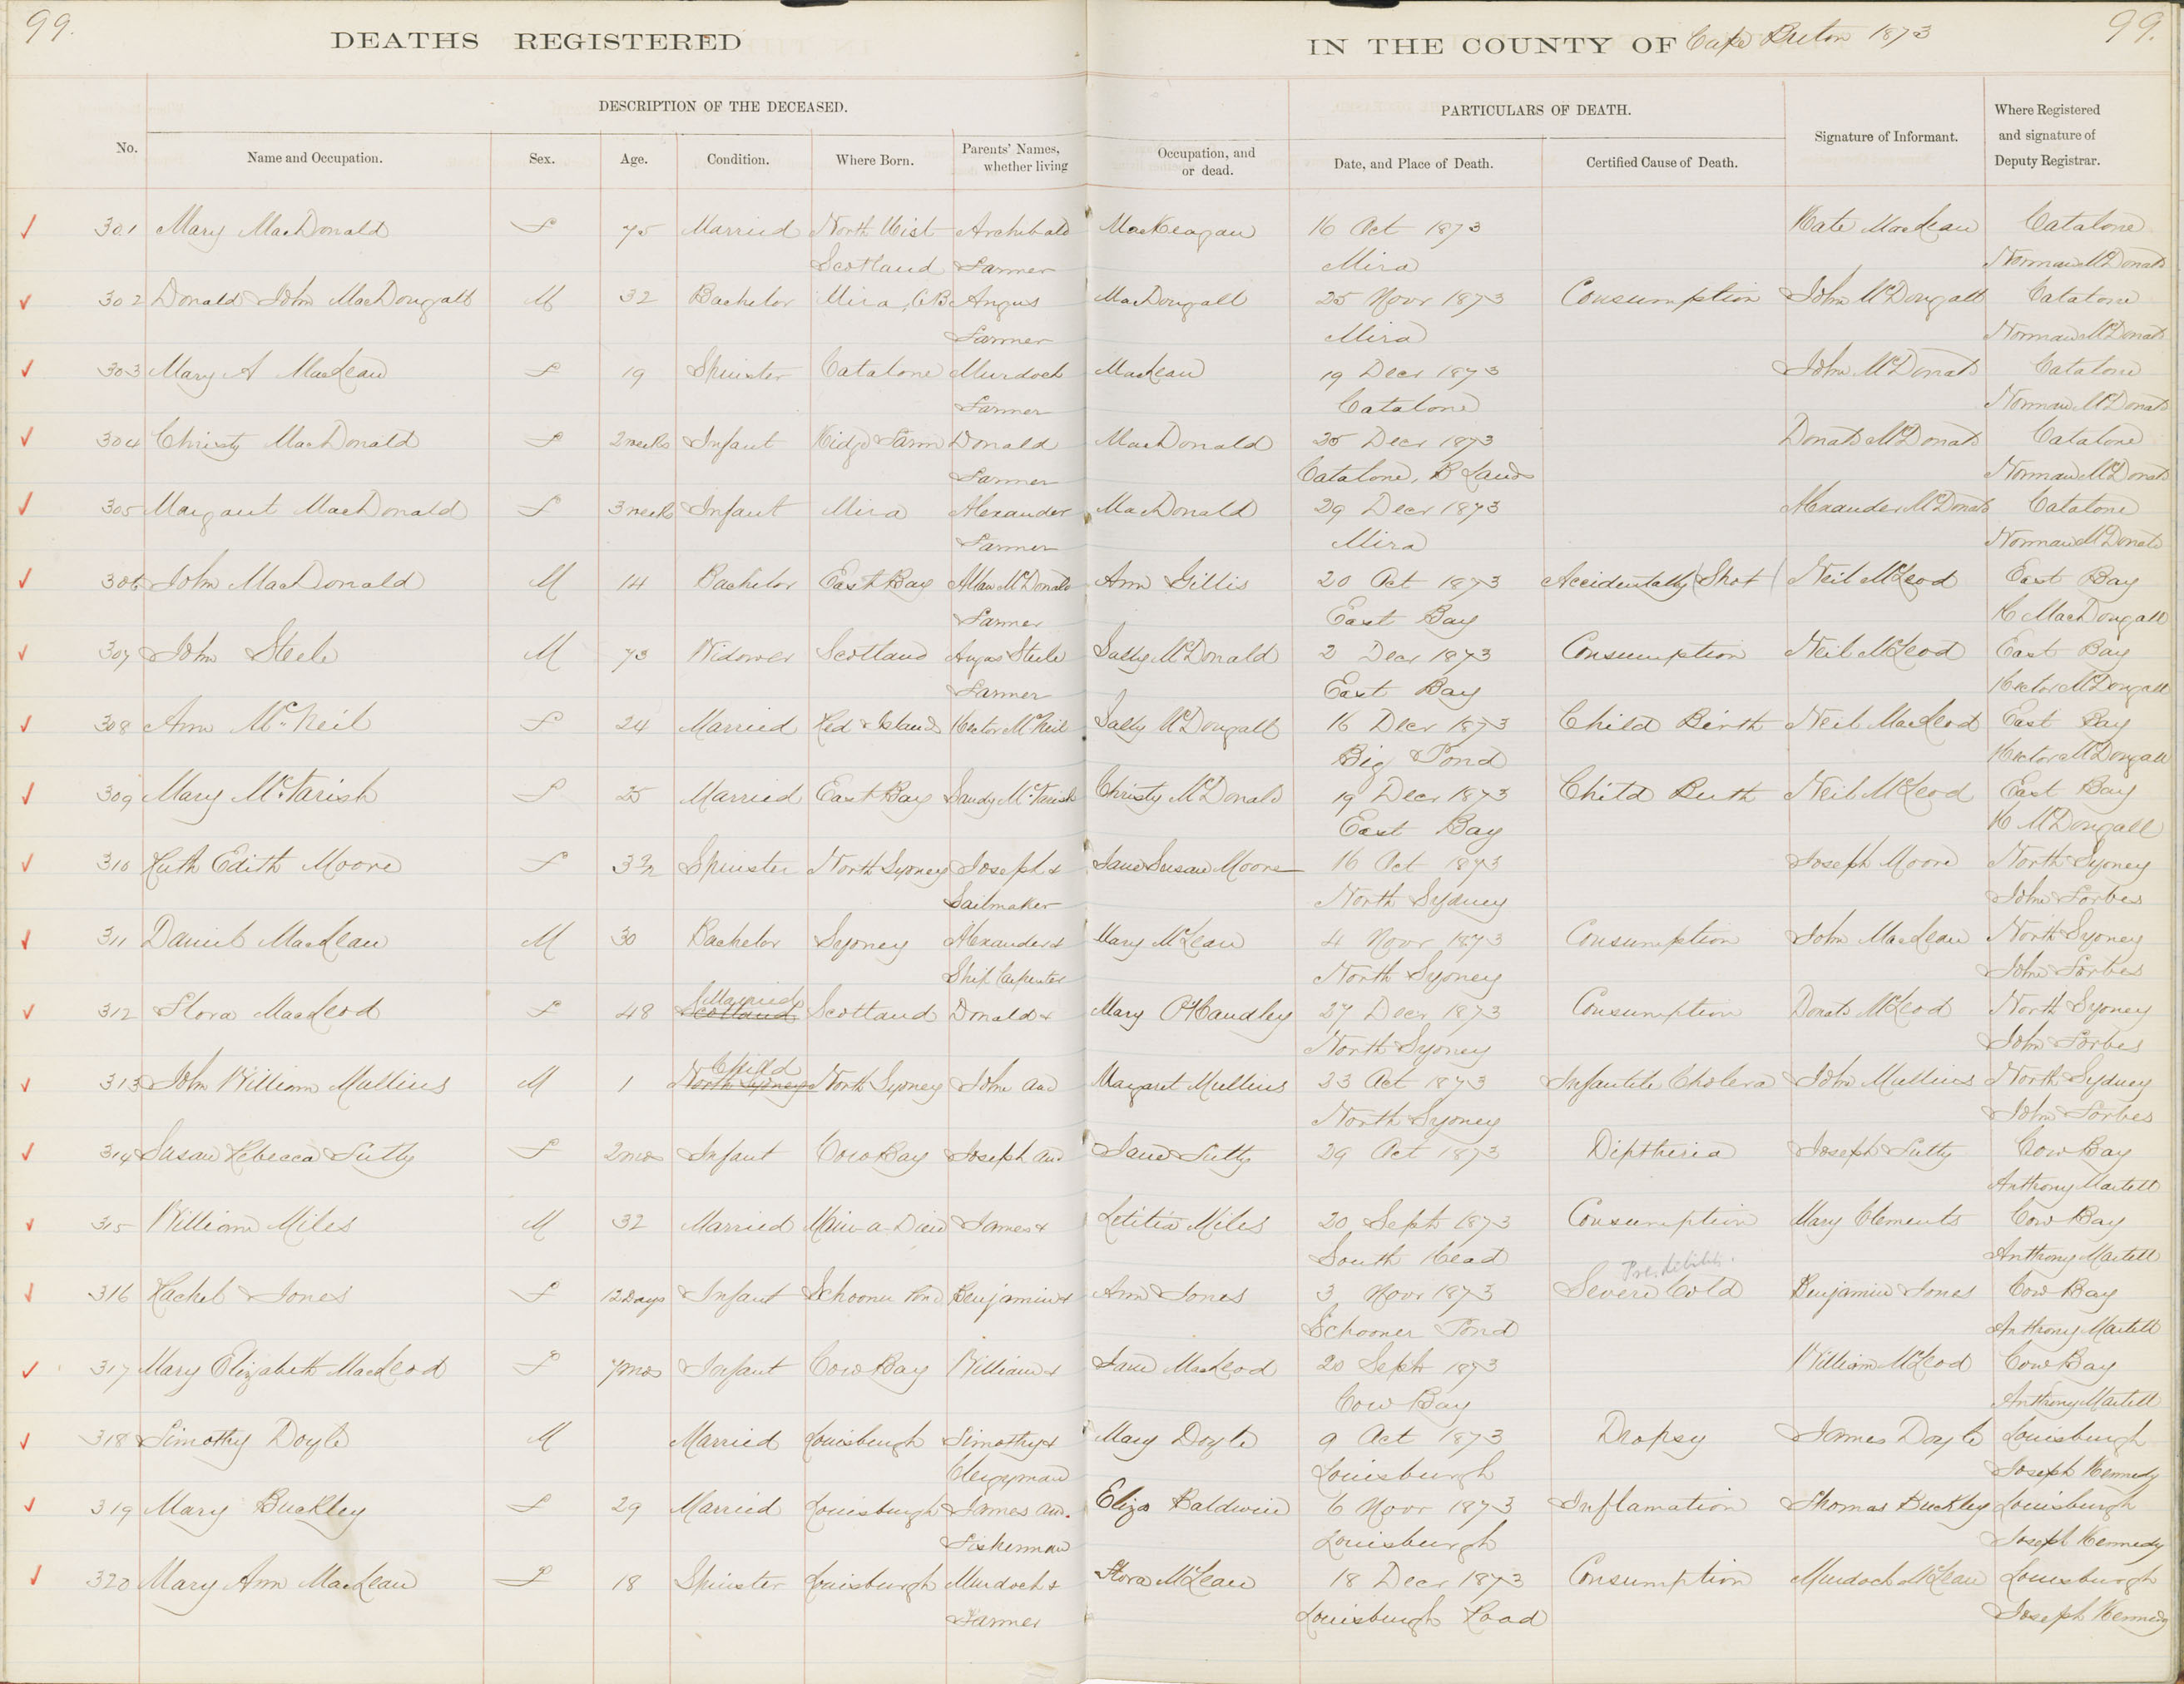 99.
DEATHS REGISTERED
IN THE COUNTY OF Cape Breton 1873
99.
DESCRIPTION OF THE DECEASED.
PARTICULARS OF DEATH.
No.
Name and Occupation.
Sex.
Age.
Condition.
Where Born.
Parents' Names, whether living
Occupation, and or dead.
Date, and Place of Death.
Certified Cause of Death.
Signature of Informant.
Where Registered and signature of Deputy Registrar.
301 Mary MacDonald F 75 Married North Uist Archibald MacKeagan 16 Oct 1873 Kate MacLean Catalone
Scotland Farmer Mira Norman McDonald
302 Donald John MacDougall M 32 Bachelor Mira, C.B. Angus MacDougall 25 Novr 1873 Consumption John McDougall Catalone
Farmer Mira Norman McDonald
303 Mary A MacLean F 19 Spinster Catalone Murdoch MacLean 19 Decr 1873 John McDonald Catalone
Farmer Catalone Norman McDonald
304 Christy MacDonald F 2 weeks Infant Ridge Farm Donald MacDonald 25 Decr 1873 Donald McDonald Catalone
Farmer Catalone, B Lands Norman McDonald
305 Margaret MacDonald F 3 weeks Infant Mira Alexander MacDonald 29 Decr 1873 Alexander McDonald Catalone
Farmer Mira Norman McDonald
306 John MacDonald M 14 Bachelor East Bay Allan McDonald Ann Gillis 20 Oct 1873 Accidentally (Shot) Neil McLeod East Bay
Farmer East Bay H MacDougall
307 John Steele M 73 Widower Scotland Angus Steele Sally McDonald 2 Decr 1873 Consumption Neil McLeod East Bay
Farmer East Bay Hector McDougall
308 Ann McNeil F 24 Married Red Islands Hector McNeil Sally McDougall 16 Decr 1873 Child Birth Neil MacLeod East Bay
Big Pond Hector McDougall
309 Mary McTavish F 25 Married East Bay Sandy McTavish Christy McDonald 19 Decr 1873 Child Birth Neil McLeod East Bay
East Bay H McDougall
310 Ruth Edith Moore F Spinster North Sydney Joseph & Jane Susan Moore 16 Oct 1873 Joseph Moore North Sydney
Sailmaker North Sydney John Forbes
311 Daniel MacLean M 30 Bachelor Sydney Alexander & Mary McLean 4 Novr 1873 Consumption John MacLean North Sydney
Ship Carpenter North Sydney John Forbes
Married
312 Flora MacLeod F 48 Scotland Scotland Donald & Mary O'Handley 27 Decr 1873 Consumption Donald McLeod North Sydney
North Sydney John Forbes
Child
313 John William Mullins M 1 North Sydney North Sydney John and Margaret Mullins 23 Oct 1873 Infantile Cholera John Mullins North Sydney
North Sydney John Forbes
314 Susan Rebecca Tutty F 2 mos Infant Cow Bay Joseph and Jane Tutty 29 Oct 1873 Diptheria Joseph Tutty Cow Bay
Anthony Martell
315 William Miles M 32 Married Main-a-Dieu James & Letitia Miles 20 Sept 1873 Consumption Mary Clements Cow Bay
South Head Anthony Martell
316 Rachel Jones F 12 Days Infant Schooner Pond Benjamin & Ann Jones 3 Novr 1873 Severe Cold Benjamin Jones Cow Bay
Schooner Pond Anthony Martell
317 Mary Elizabeth MacLeod F 7 mos Infant Cow Bay William & Jane MacLeod 20 Sept 1873 William McLeod Cow Bay
Cow Bay Anthony Martell
318 Timothy Doyle M Married Louisburgh Timothy & Mary Doyle 9 Oct 1873 Dropsy James Doyle Louisburgh
Clergyman Louisburgh Joseph Kennedy
319 Mary Buckley F 29 Married Louisburgh James and Eliza Baldwin 6 Novr 1873 Inflamation Thomas Buckley Louisburgh
Fisherman Louisburgh Joseph Kennedy
320 Mary Ann MacLean F 18 Spinster Louisburgh Murdoch & Flora McLean 18 Decr 1873 Consumption Murdoch McLean Louisburgh
Farmer Louisburgh Road Joseph Kennedy